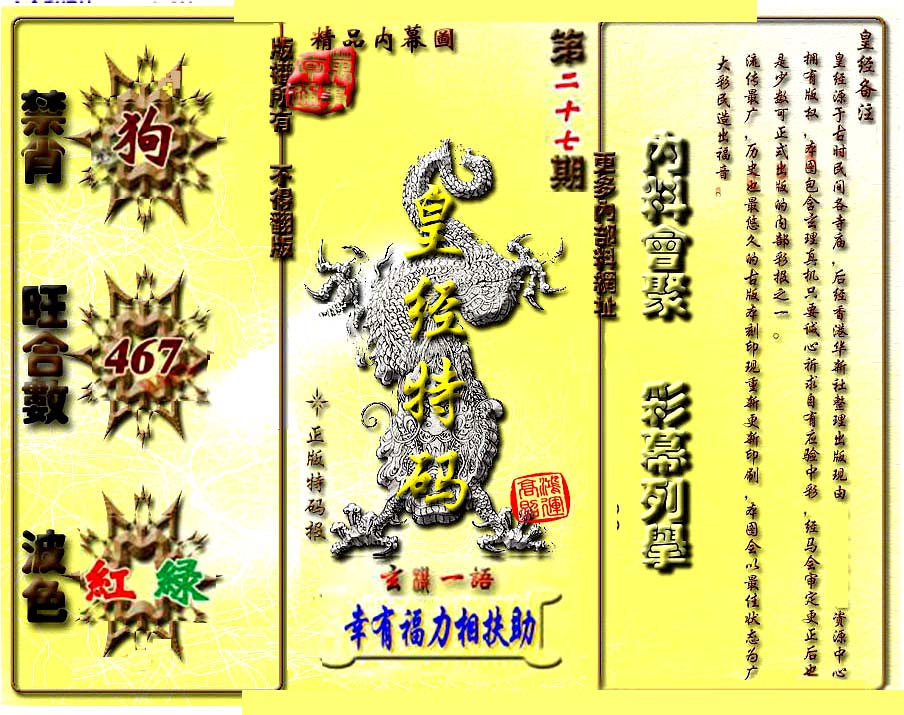 皇经备注
皇经源于古时民间各寺庙，后经香港华新社整理出版现由 资源中心
拥有版权，本图包含玄理真机只要诚心祈求自有应验中彩，经马会审定更正后也
是少数可正式出版的内部彩报之一。
流传最广，历史也最悠久的古版本刻印现重新更新印刷，本图会以最佳状态为广
大彩民造出福音
内料會聚 彩幕列舉
更多內部料網址
第二十七期
精品内幕圖
皇经特码
正版特码报
鴻運高照
玄譔一語
幸有福力相扶助
版權所有 不得翻版
禁肖
狗
旺合數
467
波色
紅 綠